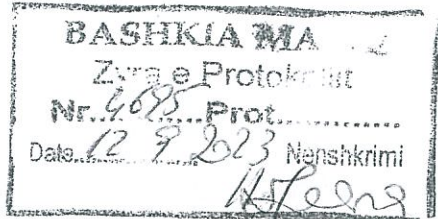 BASHKIA MA
Zyra e Protokollit
Nr. 4695 Prot.
Date 12 9 2023 Nenshkrimi